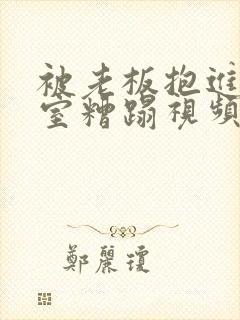 被老板抱进
室糟蹋視頻
鄭麗瓊